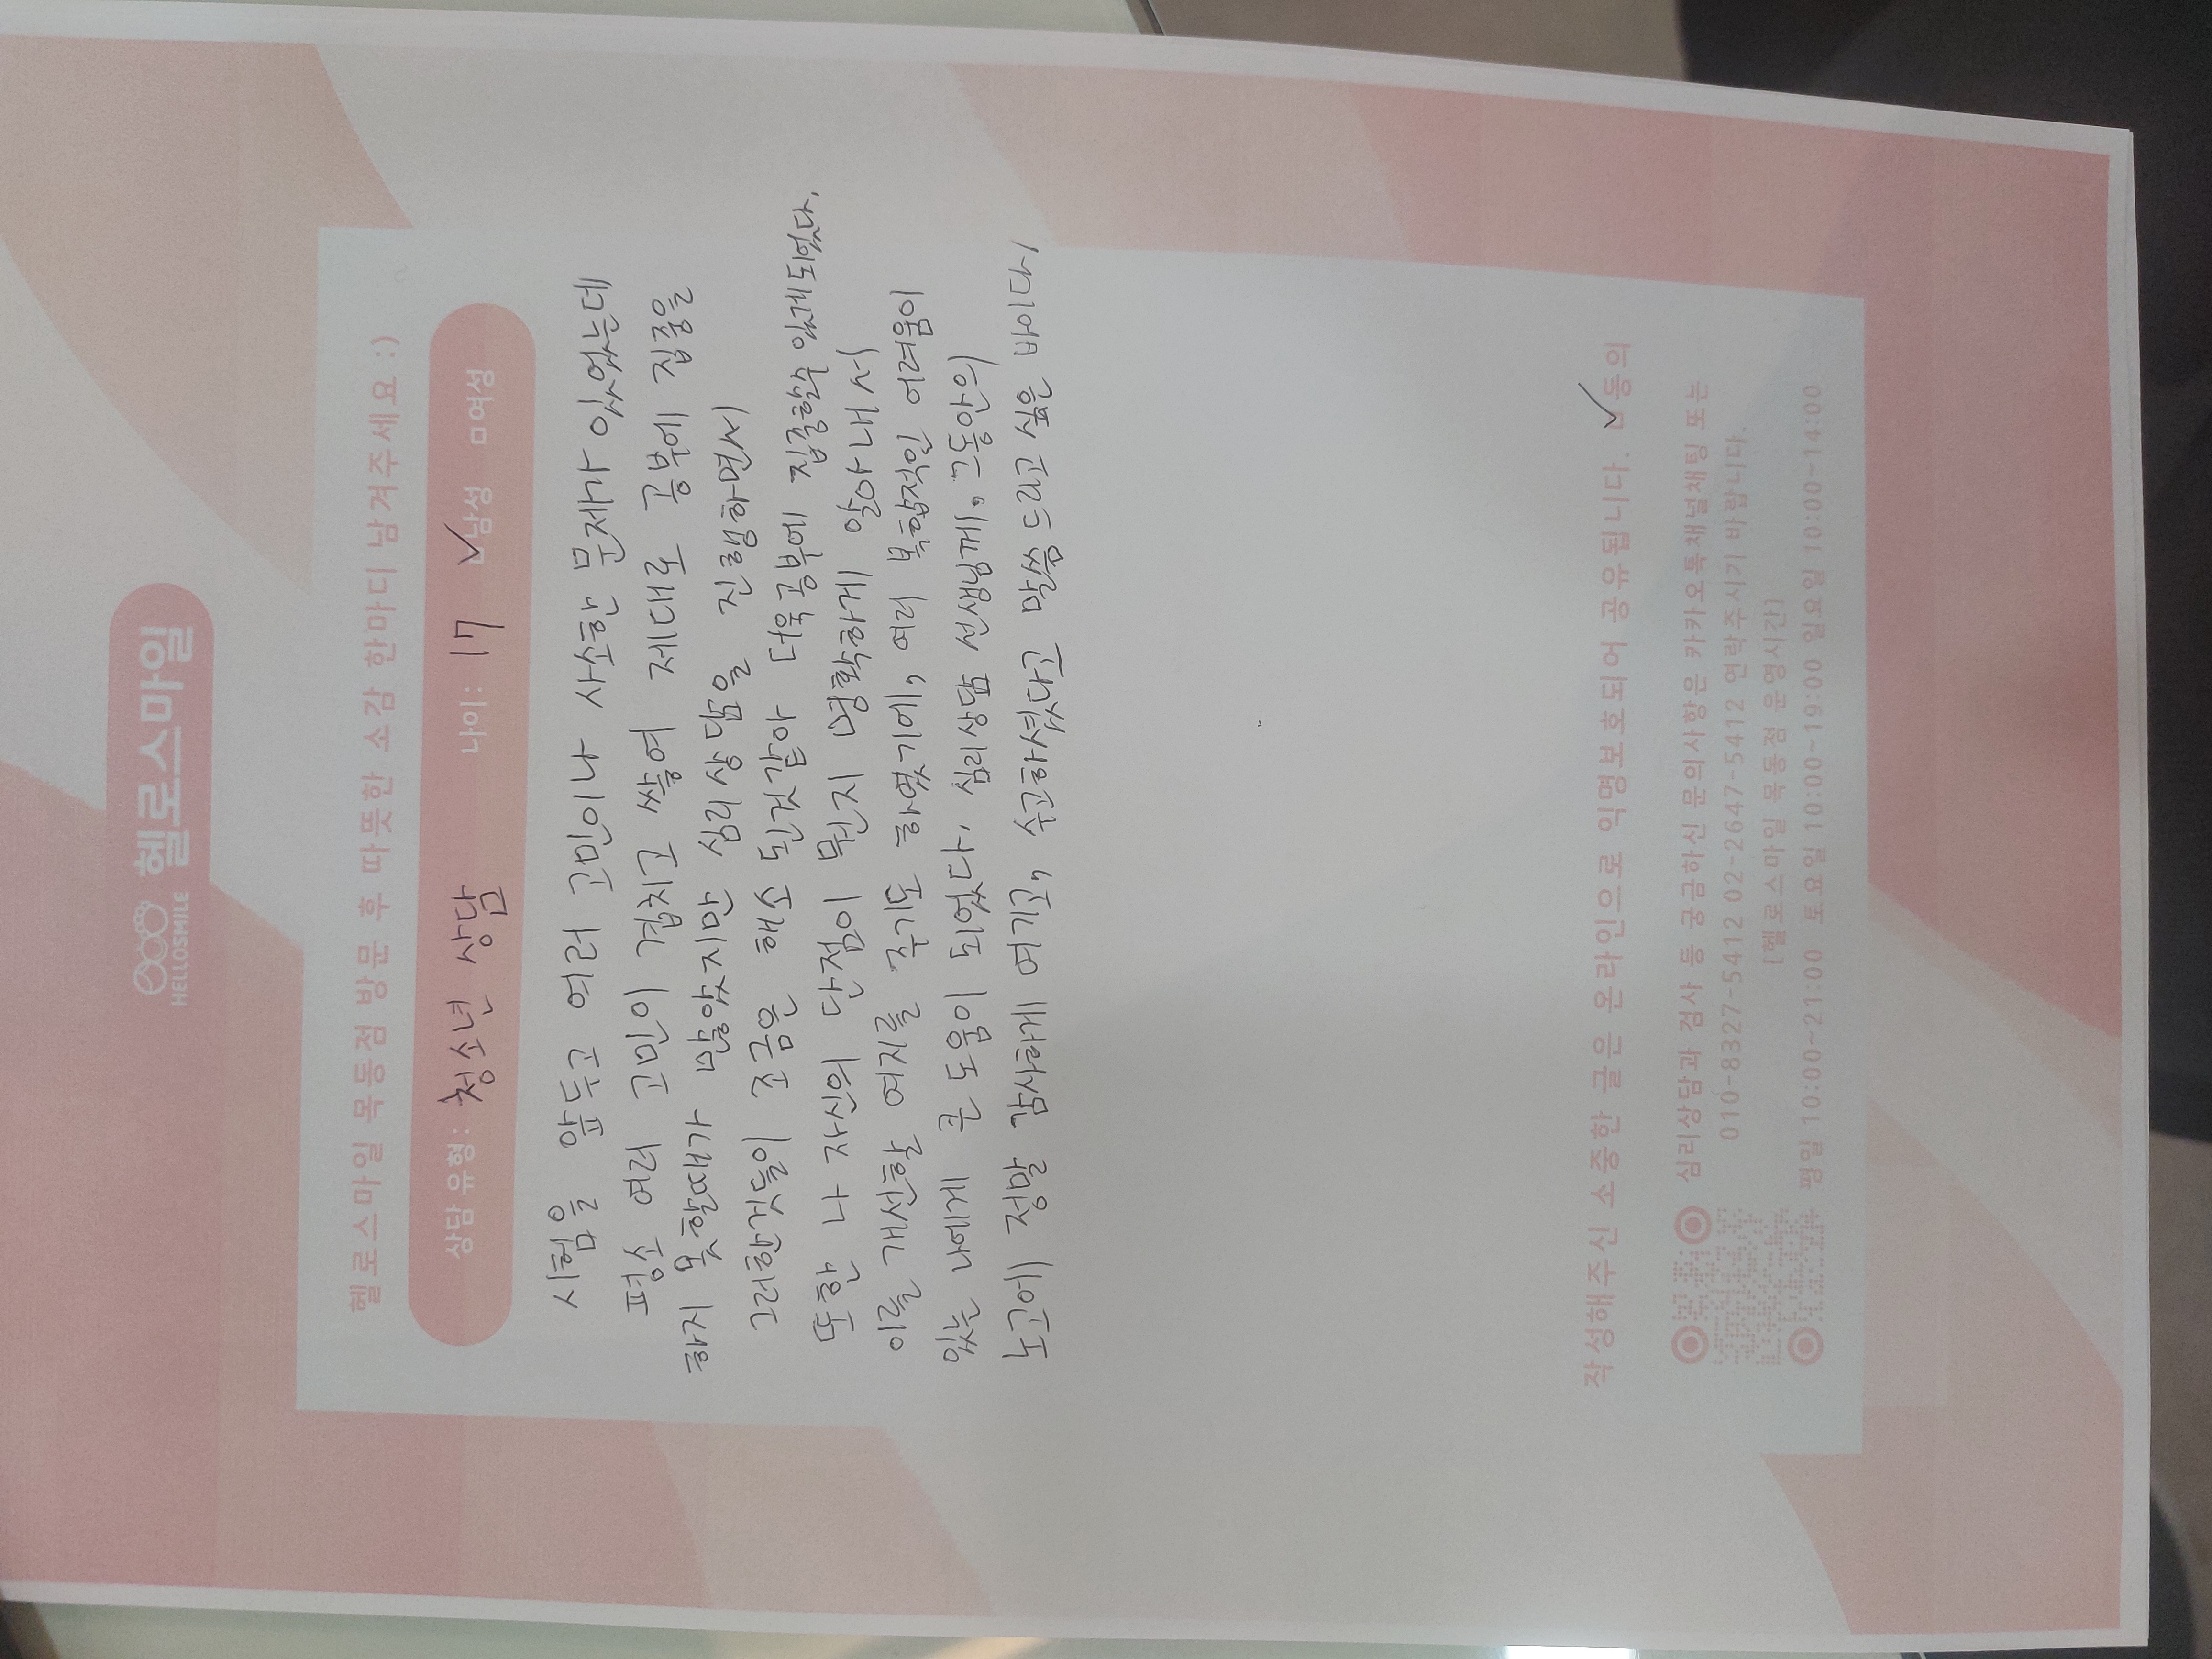 헬로스마일
HELLOSMILE
헬로스마일 목동점 방문 후 따뜻한 소감 한마디 남겨주세요 :)
상담유형: 청소년 상담 나이: 17 ☑남성 □여성
시험을 앞두고 여러 고민이나 사소한 문제가 있었는데
평소 여러 고민이 겹치고 쌓여 제대로 공부에 집중을
하지 못할때가 많았지만 심리상담을 진행하면서
그러한것들이 조금은 해소 된것같아 더욱 공부에 집중할수 있게되었다.
또한 나 자신의 단점이 뭔지 명확하게 알아내서
이를 개선할 여지를 주기도 하였기에, 여러 복합적인 어려움이
있는 나에게 큰 도움이 되었다. 심리상담 선생님께, 그동안의
노고에 정말 감사하게 여기고, 수고하셨다고 말씀 드리고 싶은 바이다
작성해주신 소중한 글은 온라인으로 익명보호되어 공유됩니다. ☑동의
심리상담과 검사 등 궁금하신 문의사항은 카카오톡채널채팅 또는
010-8327-5412 02-2647-5412 연락주시기 바랍니다.
[헬로스마일 목동점 운영시간]
평일 10:00~21:00 토요일 10:00~19:00 일요일 10:00~14:00